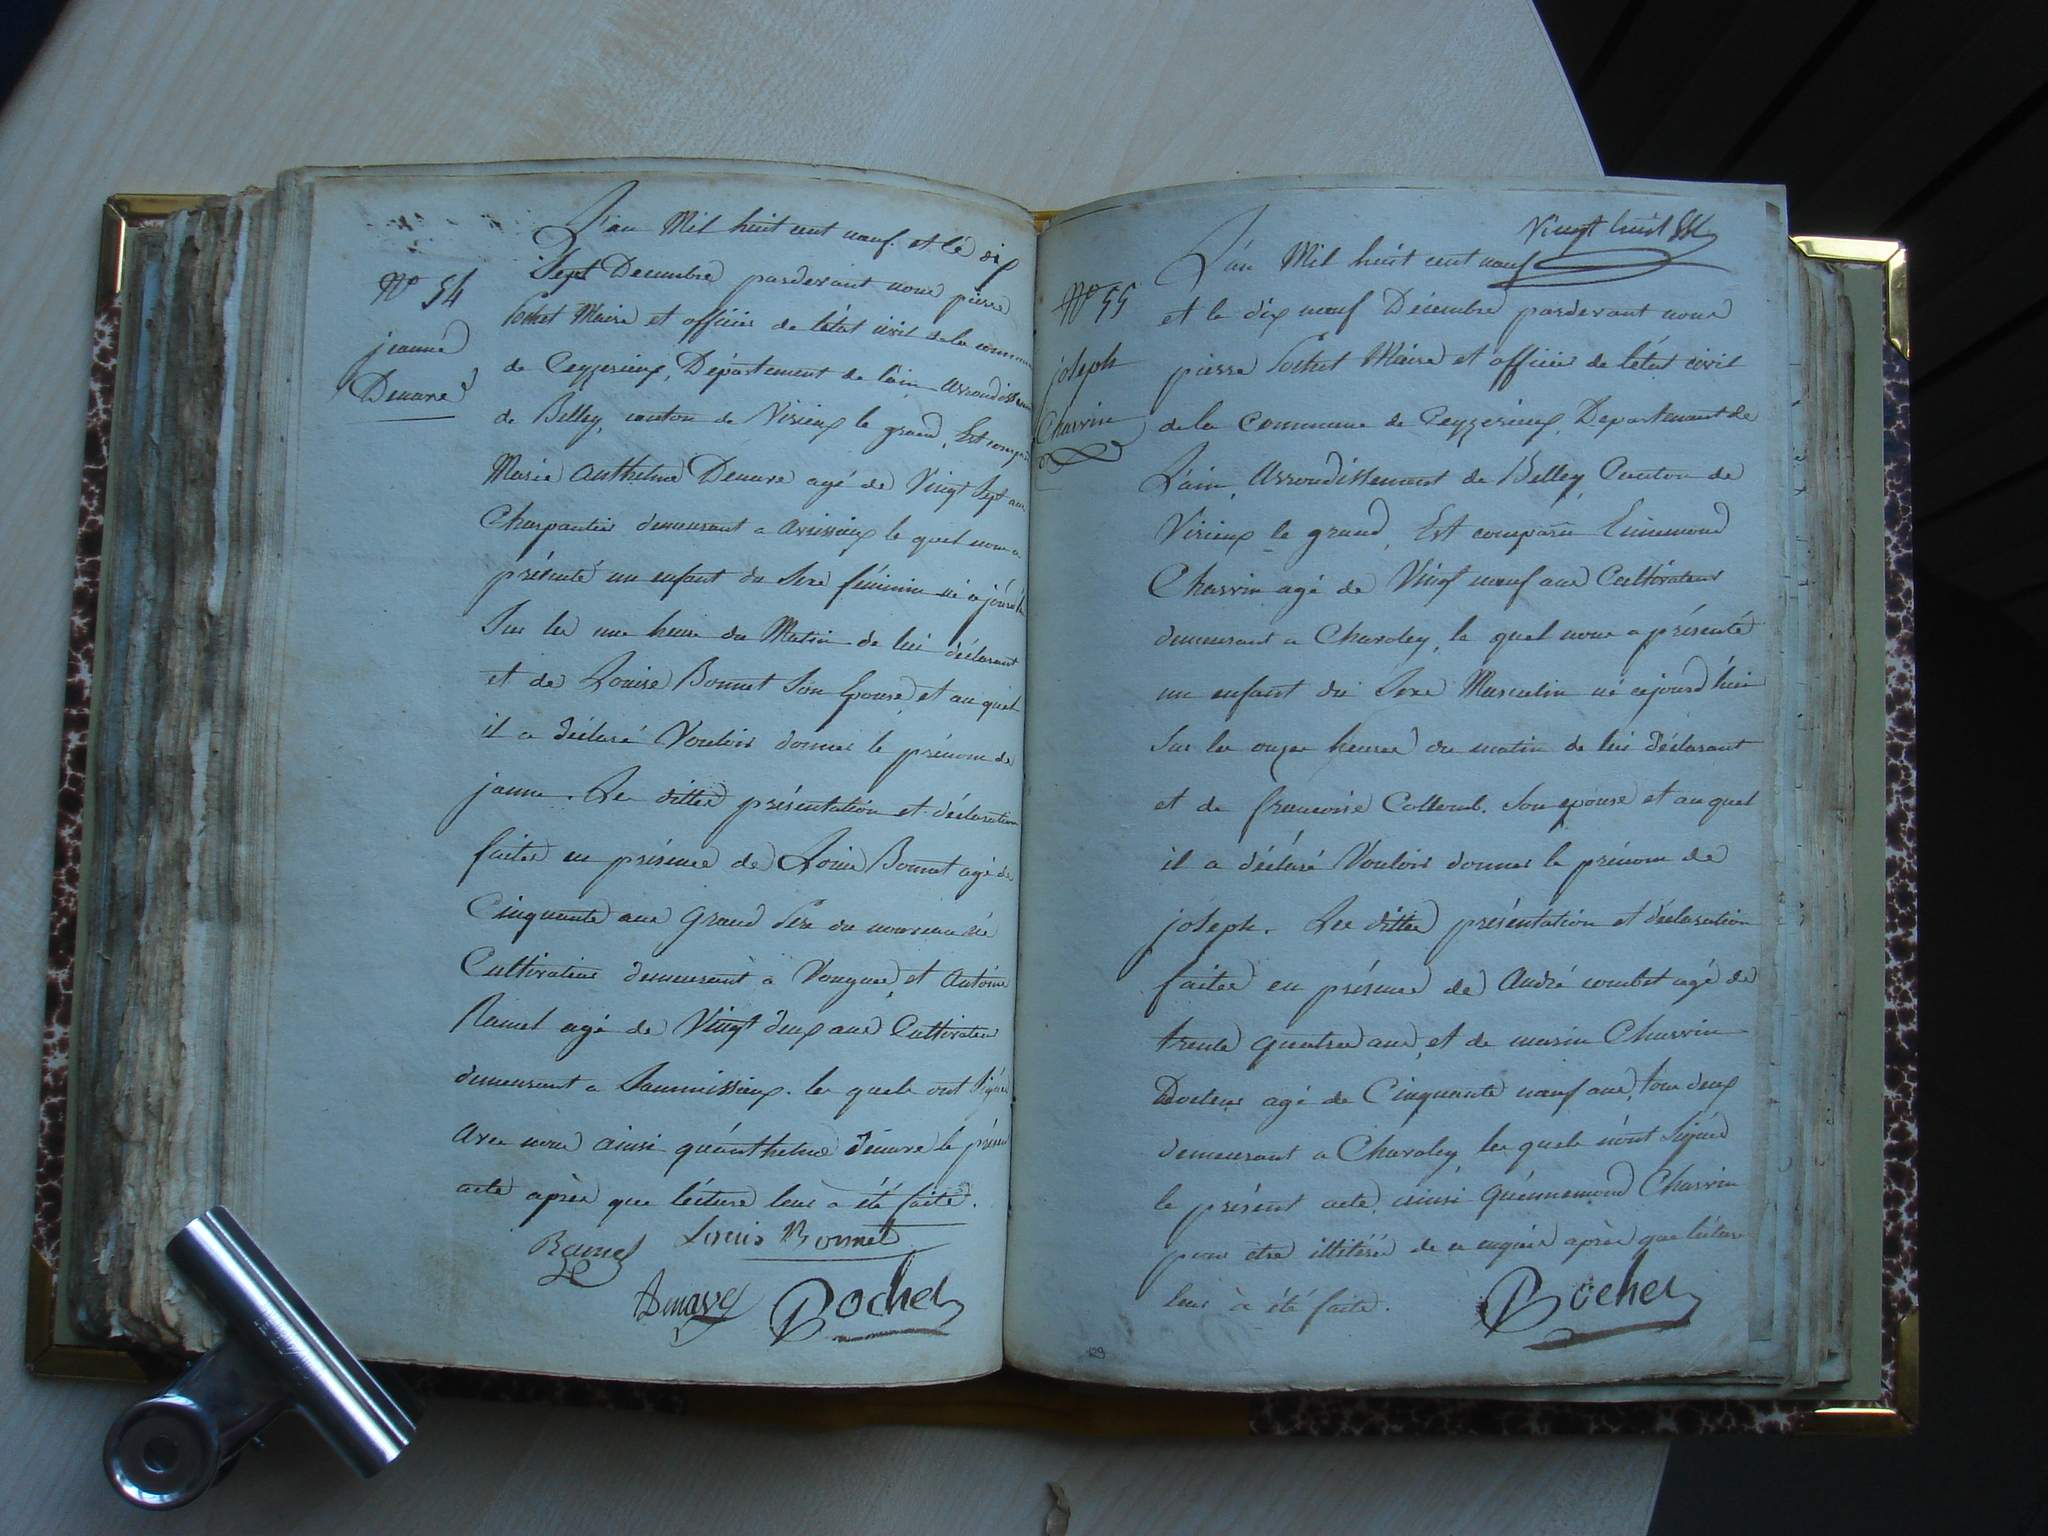 L'an Mil huit cent neuf. et lé dix
Sept Decembre pardevant nous pierre
Pochet Maire et officier de l'état civil de la commune
de Ceyzerieux, Département de l'ain arrondissement
de Belley, canton de Virieux le grand, Est comparu
N° 54
jeanne
Denave
Marie Anthelme Denave agé de Vingt Sept ans
Charpantier demeurant a avrissieux le quel nous a
présenté un enfant du Sexe féminin né ajourd'h
Sur les une heure du Matin de lui déclarant
et de Louise Bonnet Son Epouse et au quel
il a déclaré Vouloir donner le prénom de
janne. Les dittes présentation et déclaration
faites en présence de Louis Bonnet agé de
Cinquante ans Grand Pere du nouveau né
Cultivateur demeurant à Vongnes, et Antoine
Ramel agé de Vingt deux ans Cultivateur
demeurant a les quels ont Signé
Avec nous ainsi qu'anthelme denave le présent
acte après que lécture leur a été faite.
Ramel Louis Bonnet
Denave Pochet
Vingt huit
L'an Mil huit cent neuf
N° 55
joseph
Charvin
et le dix neuf Décembre pardevant nous
pierre Pochet Maire et officier de l'état civil
de la Commune de Ceyzerieux, Departement de
L'ain, Arrondissement de Belley, Canton de
Virieux le grand, Est comparu Ennemond
Charvin agé de Vingt neuf ans Cultivateur
demeurant a Charoley, le quel nous a présenté
un enfant du Sexe Masculin né ajourd'hui
Sur les onze heures du matin de lui déclarant
et de francoise Collomb. Son epouse et au quel
il a déclaré Vouloir donner le prénom de
joseph. Les dittes présentation et déclaration
faites en présence de André combet agé de
trente quatres ans, et de marin Charvin
agé de Cinquante neuf ans, tous deux
demeurant a Charoley les quels n'ont Signés
le présent acte, ainsi qu'énnemond Charvin
pour être illitéré de ce enquis après que lécture
leur à été faite. Pochet
129